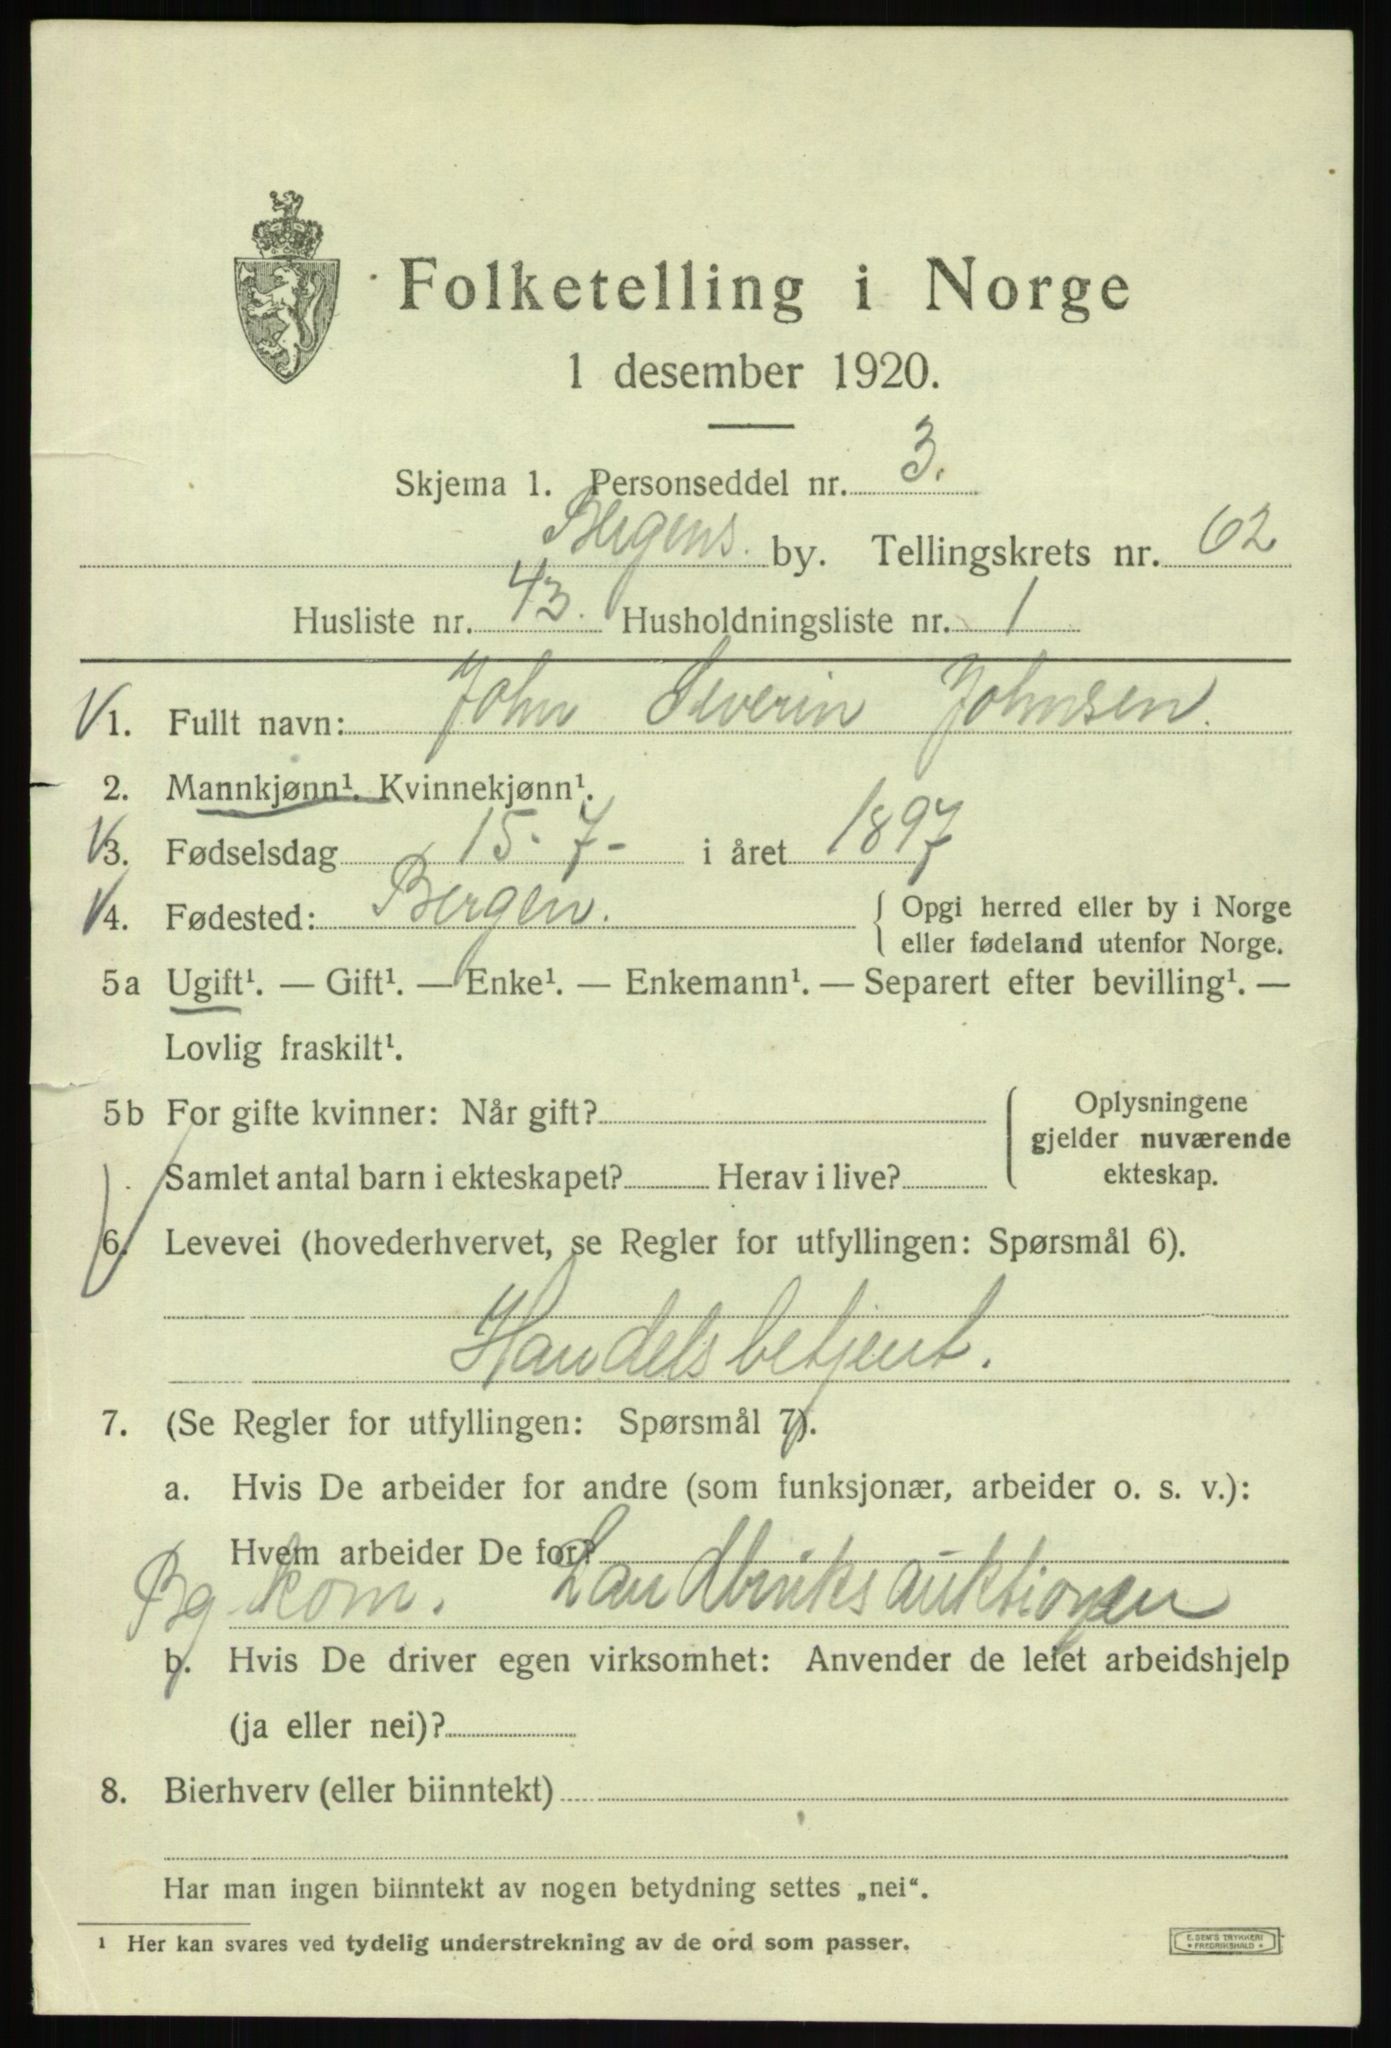 Folketelling i Norge
1 desember 1920.
Skjema 1. Personseddel nr. 3.
Bergens by. Tellingskrets nr. 62
Husliste nr. 43. Husholdningsliste nr. 1
1. Fullt navn: John Severin Johnsen.
2. Mannkjønn¹. Kvinnekjønn¹.
3. Fødselsdag 15-7- i året 1897
4. Fødested: Bergen. { Opgi herred eller by i Norge
eller fødeland utenfor Norge.
5a Ugift¹. — Gift¹. — Enke¹. — Enkemann¹. — Separert efter bevilling¹. —
Lovlig fraskilt¹.
5b For gifte kvinner: Når gift? { Oplysningene
gjelder nuværende
Samlet antal barn i ekteskapet? Herav i live? ekteskap.
6. Levevei (hovederhvervet, se Regler for utfyllingen: Spørsmål 6).
Handelsbetjent.
7. (Se Regler for utfyllingen: Spørsmål 7).
a. Hvis De arbeider for andre (som funksjonær, arbeider o. s. v.):
Hvem arbeider De for?
Bg kom. Landbruksauktionen
b. Hvis De driver egen virksomhet: Anvender de leiet arbeidshjelp
(ja eller nei)?
8. Bierhverv (eller biinntekt)
Har man ingen biinntekt av nogen betydning settes „nei“.
¹ Her kan svares ved tydelig understrekning av de ord som passer.
E. SEM'S TRYKKERI
* FREDRIKSHALD *